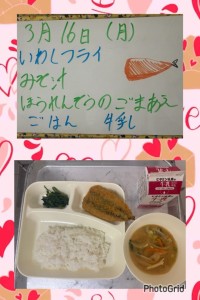 3月16日(月)
いわしフライ
みそ汁
ほうれんそうのごまあえ
ごはん 牛乳
牛乳
PhotoGrid